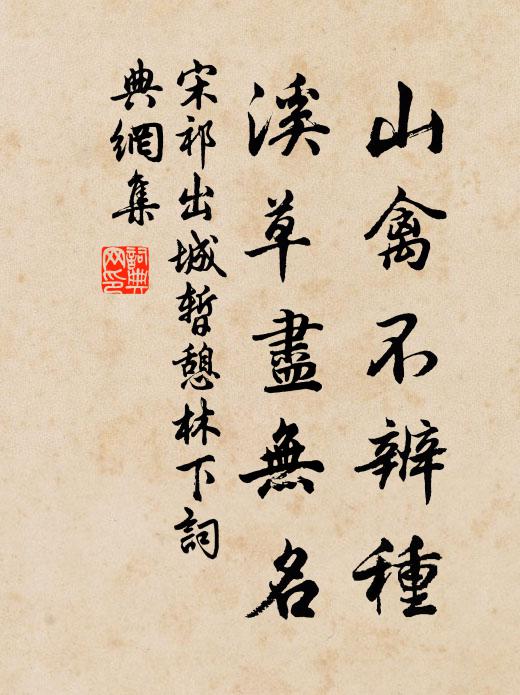 山禽不辨種
溪草盡無名
宋祁出城暫憩林下詞
典網集
詞典網印